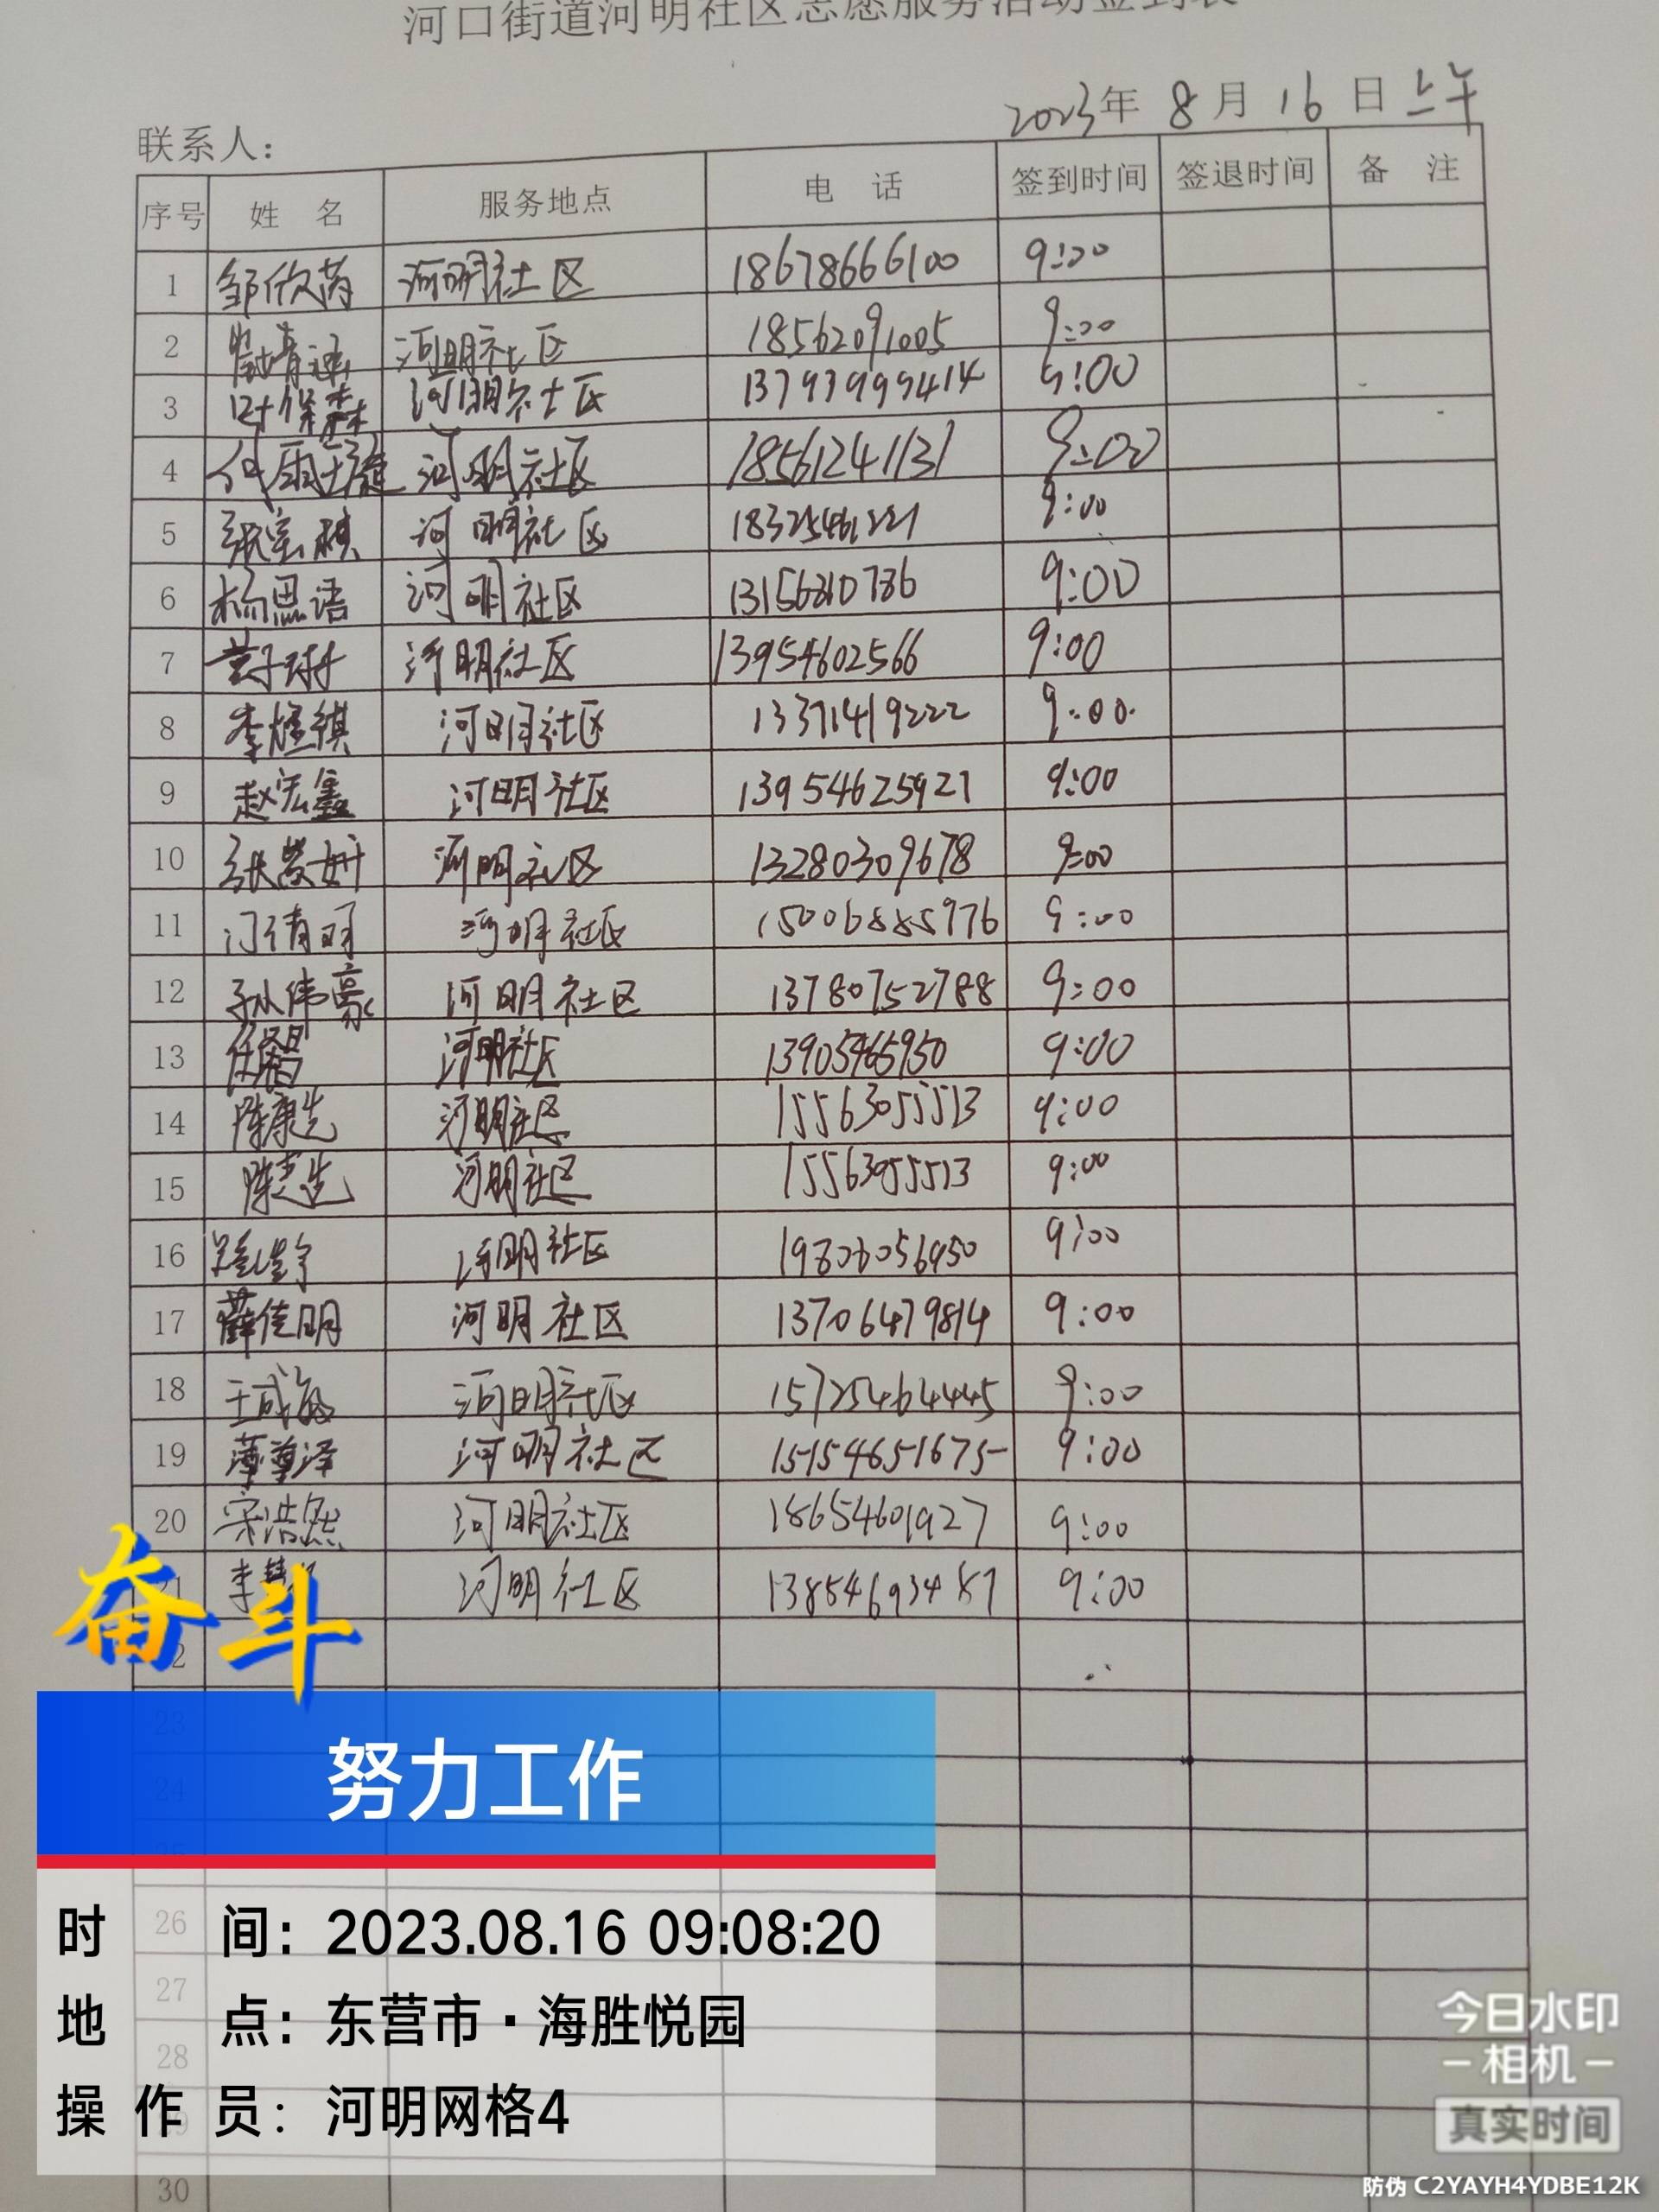 河口街道河明社区志愿服务活动签到表
2023年 8月 16日 上午
联系人：
序号 姓 名 服务地点 电 话 签到时间 签退时间 备 注
1 邹欣芮 河明社区 18678666100 9:00
2 河明社区 18562091005 9:00
3 时保森 河明社区 13793999414 9:00
4 河明社区 18561241131 9:00
5 河明社区 18325461221 9:00
6 杨思语 河明社区 9:00
7 河明社区 13954602566 9:00
8 李煊祺 河明社区 13371419222 9:00
9 赵宏鑫 河明社区 13954625921 9:00
10 河明社区 13280309678 9:00
11 门倩羽 河明社区 15006885976 9:00
12 孙伟豪 河明社区 13780752788 9:00
13 河明社区 13905465950 9:00
14 陈康先 河明社区 15563055513 9:00
15 陈志先 河明社区 15563055513 9:00
16 河明社区 9:00
17 薛佳明 河明社区 13706479814 9:00
18 河明社区 15725464445 9:00
19 薄尊泽 河明社区 15154651675 9:00
20 宋浩然 河明社区 18654601927 9:00
21 李 河明社区 9:00
2
奋斗
23
努力工作
24
25
26
时 间：2023.08.16 09:08:20
27
地 点：东营市·海胜悦园
28
操作员：河明网格4
29
30
今日水印
相机
真实时间
防伪 C2YAYH4YDBE12K